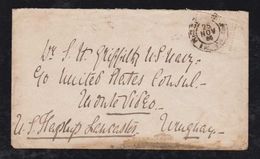 Dr. S. H. Griffith U S Navy
c/o United States Consul.
Montevideo
U. S. Flagship Lancaster. Uruguay.
25
NOV